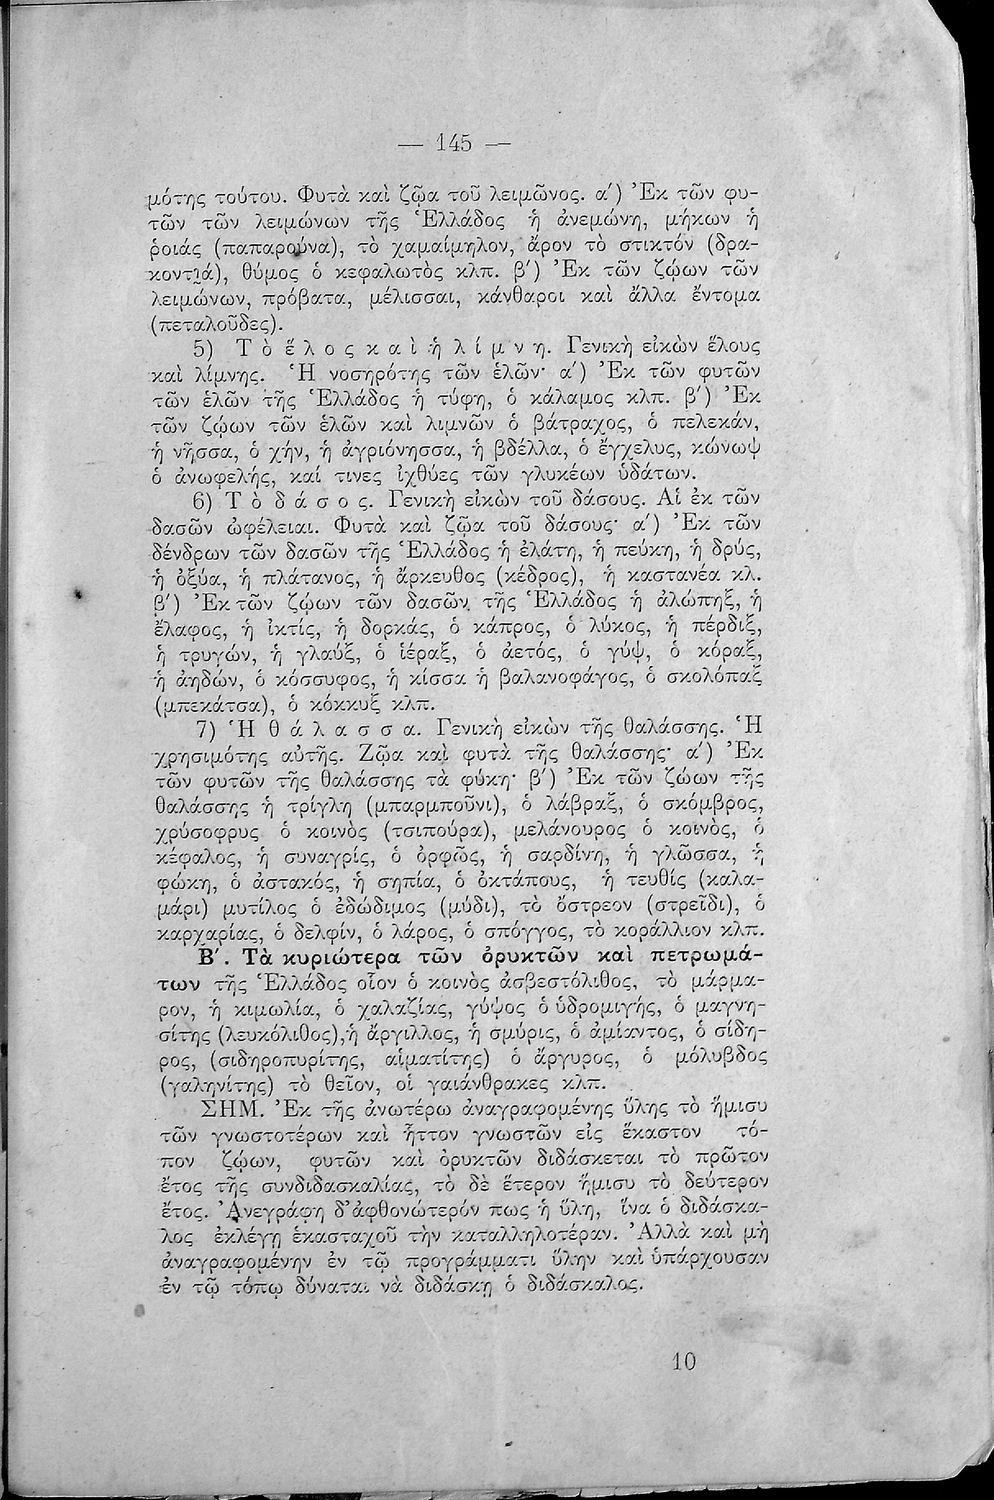 — 145 —
μότης τούτου. Φυτὰ καὶ ζῷα τοῦ λειμῶνος. α΄) Ἐκ τῶν φυ-
τῶν τῶν λειμώνων τῆς Ἑλλάδος ἡ ἀνεμώνη, μήκων ἡ
ῥοιάς (παπαρούνα), τὸ χαμαίμηλον, ἄρον τὸ στικτόν (δρα-
κοντιά), θύμος ὁ κεφαλωτὸς κλπ. β΄) Ἐκ τῶν ζῴων τῶν
λειμώνων, πρόβατα, μέλισσαι, κάνθαροι καὶ ἄλλα ἔντομα
(πεταλοῦδες).
5) Τ ὸ ἕ λ ο ς κ α ὶ ἡ λ ί μ ν η. Γενικὴ εἰκὼν ἕλους
καὶ λίμνης. Ἡ νοσηρότης τῶν ἑλῶν· α΄) Ἐκ τῶν φυτῶν
τῶν ἑλῶν τῆς Ἑλλάδος ἡ τύφη, ὁ κάλαμος κλπ. β΄) Ἐκ
τῶν ζῴων τῶν ἑλῶν καὶ λιμνῶν ὁ βάτραχος, ὁ πελεκάν,
ἡ νῆσσα, ὁ χήν, ἡ ἀγριόνησσα, ἡ βδέλλα, ὁ ἔγχελυς, κώνωψ
ὁ ἀνωφελής, καί τινες ἰχθύες τῶν γλυκέων ὑδάτων.
6) Τ ὸ δ ά σ ο ς. Γενικὴ εἰκὼν τοῦ δάσους. Αἱ ἐκ τῶν
δασῶν ὠφέλειαι. Φυτὰ καὶ ζῷα τοῦ δάσους· α΄) Ἐκ τῶν
δένδρων τῶν δασῶν τῆς Ἑλλάδος ἡ ἐλάτη, ἡ πεύκη, ἡ δρύς,
ἡ ὀξύα, ἡ πλάτανος, ἡ ἄρκευθος (κέδρος), ἡ καστανέα κλ.
β΄) Ἐκ τῶν ζῴων τῶν δασῶν τῆς Ἑλλάδος ἡ ἀλώπηξ, ἡ
ἔλαφος, ἡ ἰκτίς, ἡ δορκάς, ὁ κάπρος, ὁ λύκος, ἡ πέρδιξ,
ἡ τρυγών, ἡ γλαύξ, ὁ ἱέραξ, ὁ ἀετός, ὁ γύψ, ὁ κόραξ,
ἡ ἀηδών, ὁ κόσσυφος, ἡ κίσσα ἡ βαλανοφάγος, ὁ σκολόπαξ
(μπεκάτσα), ὁ κόκκυξ κλπ.
7) Ἡ θ ά λ α σ σ α. Γενικὴ εἰκὼν τῆς θαλάσσης. Ἡ
χρησιμότης αὐτῆς. Ζῷα καὶ φυτὰ τῆς θαλάσσης· α΄) Ἐκ
τῶν φυτῶν τῆς θαλάσσης τὰ φύκη· β΄) Ἐκ τῶν ζώων τῆς
θαλάσσης ἡ τρίγλη (μπαρμποῦνι), ὁ λάβραξ, ὁ σκόμβρος,
χρύσοφρυς ὁ κοινὸς (τσιπούρα), μελάνουρος ὁ κοινὸς, ὁ
κέφαλος, ἡ συναγρίς, ὁ ὀρφῶς, ἡ σαρδίνη, ἡ γλῶσσα, ἡ
φώκη, ὁ ἀστακός, ἡ σηπία, ὁ ὀκτάπους, ἡ τευθίς (καλα-
μάρι) μυτίλος ὁ ἐδώδιμος (μύδι), τὸ ὄστρεον (στρεῖδι), ὁ
καρχαρίας, ὁ δελφίν, ὁ λάρος, ὁ σπόγγος, τὸ κοράλλιον κλπ.
Β΄. Τὰ κυριώτερα τῶν ὀρυκτῶν καὶ πετρωμά-
των τῆς Ἑλλάδος οἷον ὁ κοινὸς ἀσβεστόλιθος, τὸ μάρμα-
ρον, ἡ κιμωλία, ὁ χαλαζίας, γύψος ὁ ὑδρομιγής, ὁ μαγνη-
σίτης (λευκόλιθος),ἡ ἄργιλλος, ἡ σμύρις, ὁ ἀμίαντος, ὁ σίδη-
ρος, (σιδηροπυρίτης, αἱματίτης) ὁ ἄργυρος, ὁ μόλυβδος
(γαληνίτης) τὸ θεῖον, οἱ γαιάνθρακες κλπ.
ΣΗΜ. Ἐκ τῆς ἀνωτέρω ἀναγραφομένης ὕλης τὸ ἥμισυ
τῶν γνωστοτέρων καὶ ἧττον γνωστῶν εἰς ἕκαστον τό-
πον ζῴων, φυτῶν καὶ ὀρυκτῶν διδάσκεται τὸ πρῶτον
ἔτος τῆς συνδιδασκαλίας, τὸ δὲ ἕτερον ἥμισυ τὸ δεύτερον
ἔτος. Ἀνεγράφη δ' ἀφθονώτερόν πως ἡ ὕλη, ἵνα ὁ διδάσκα-
λος ἐκλέγῃ ἑκασταχοῦ τὴν καταλληλοτέραν. Ἀλλὰ καὶ μὴ
ἀναγραφομένην ἐν τῷ προγράμματι ὕλην καὶ ὑπάρχουσαν
ἐν τῷ τόπῳ δύναται νὰ διδάσκῃ ὁ διδάσκαλος.
10